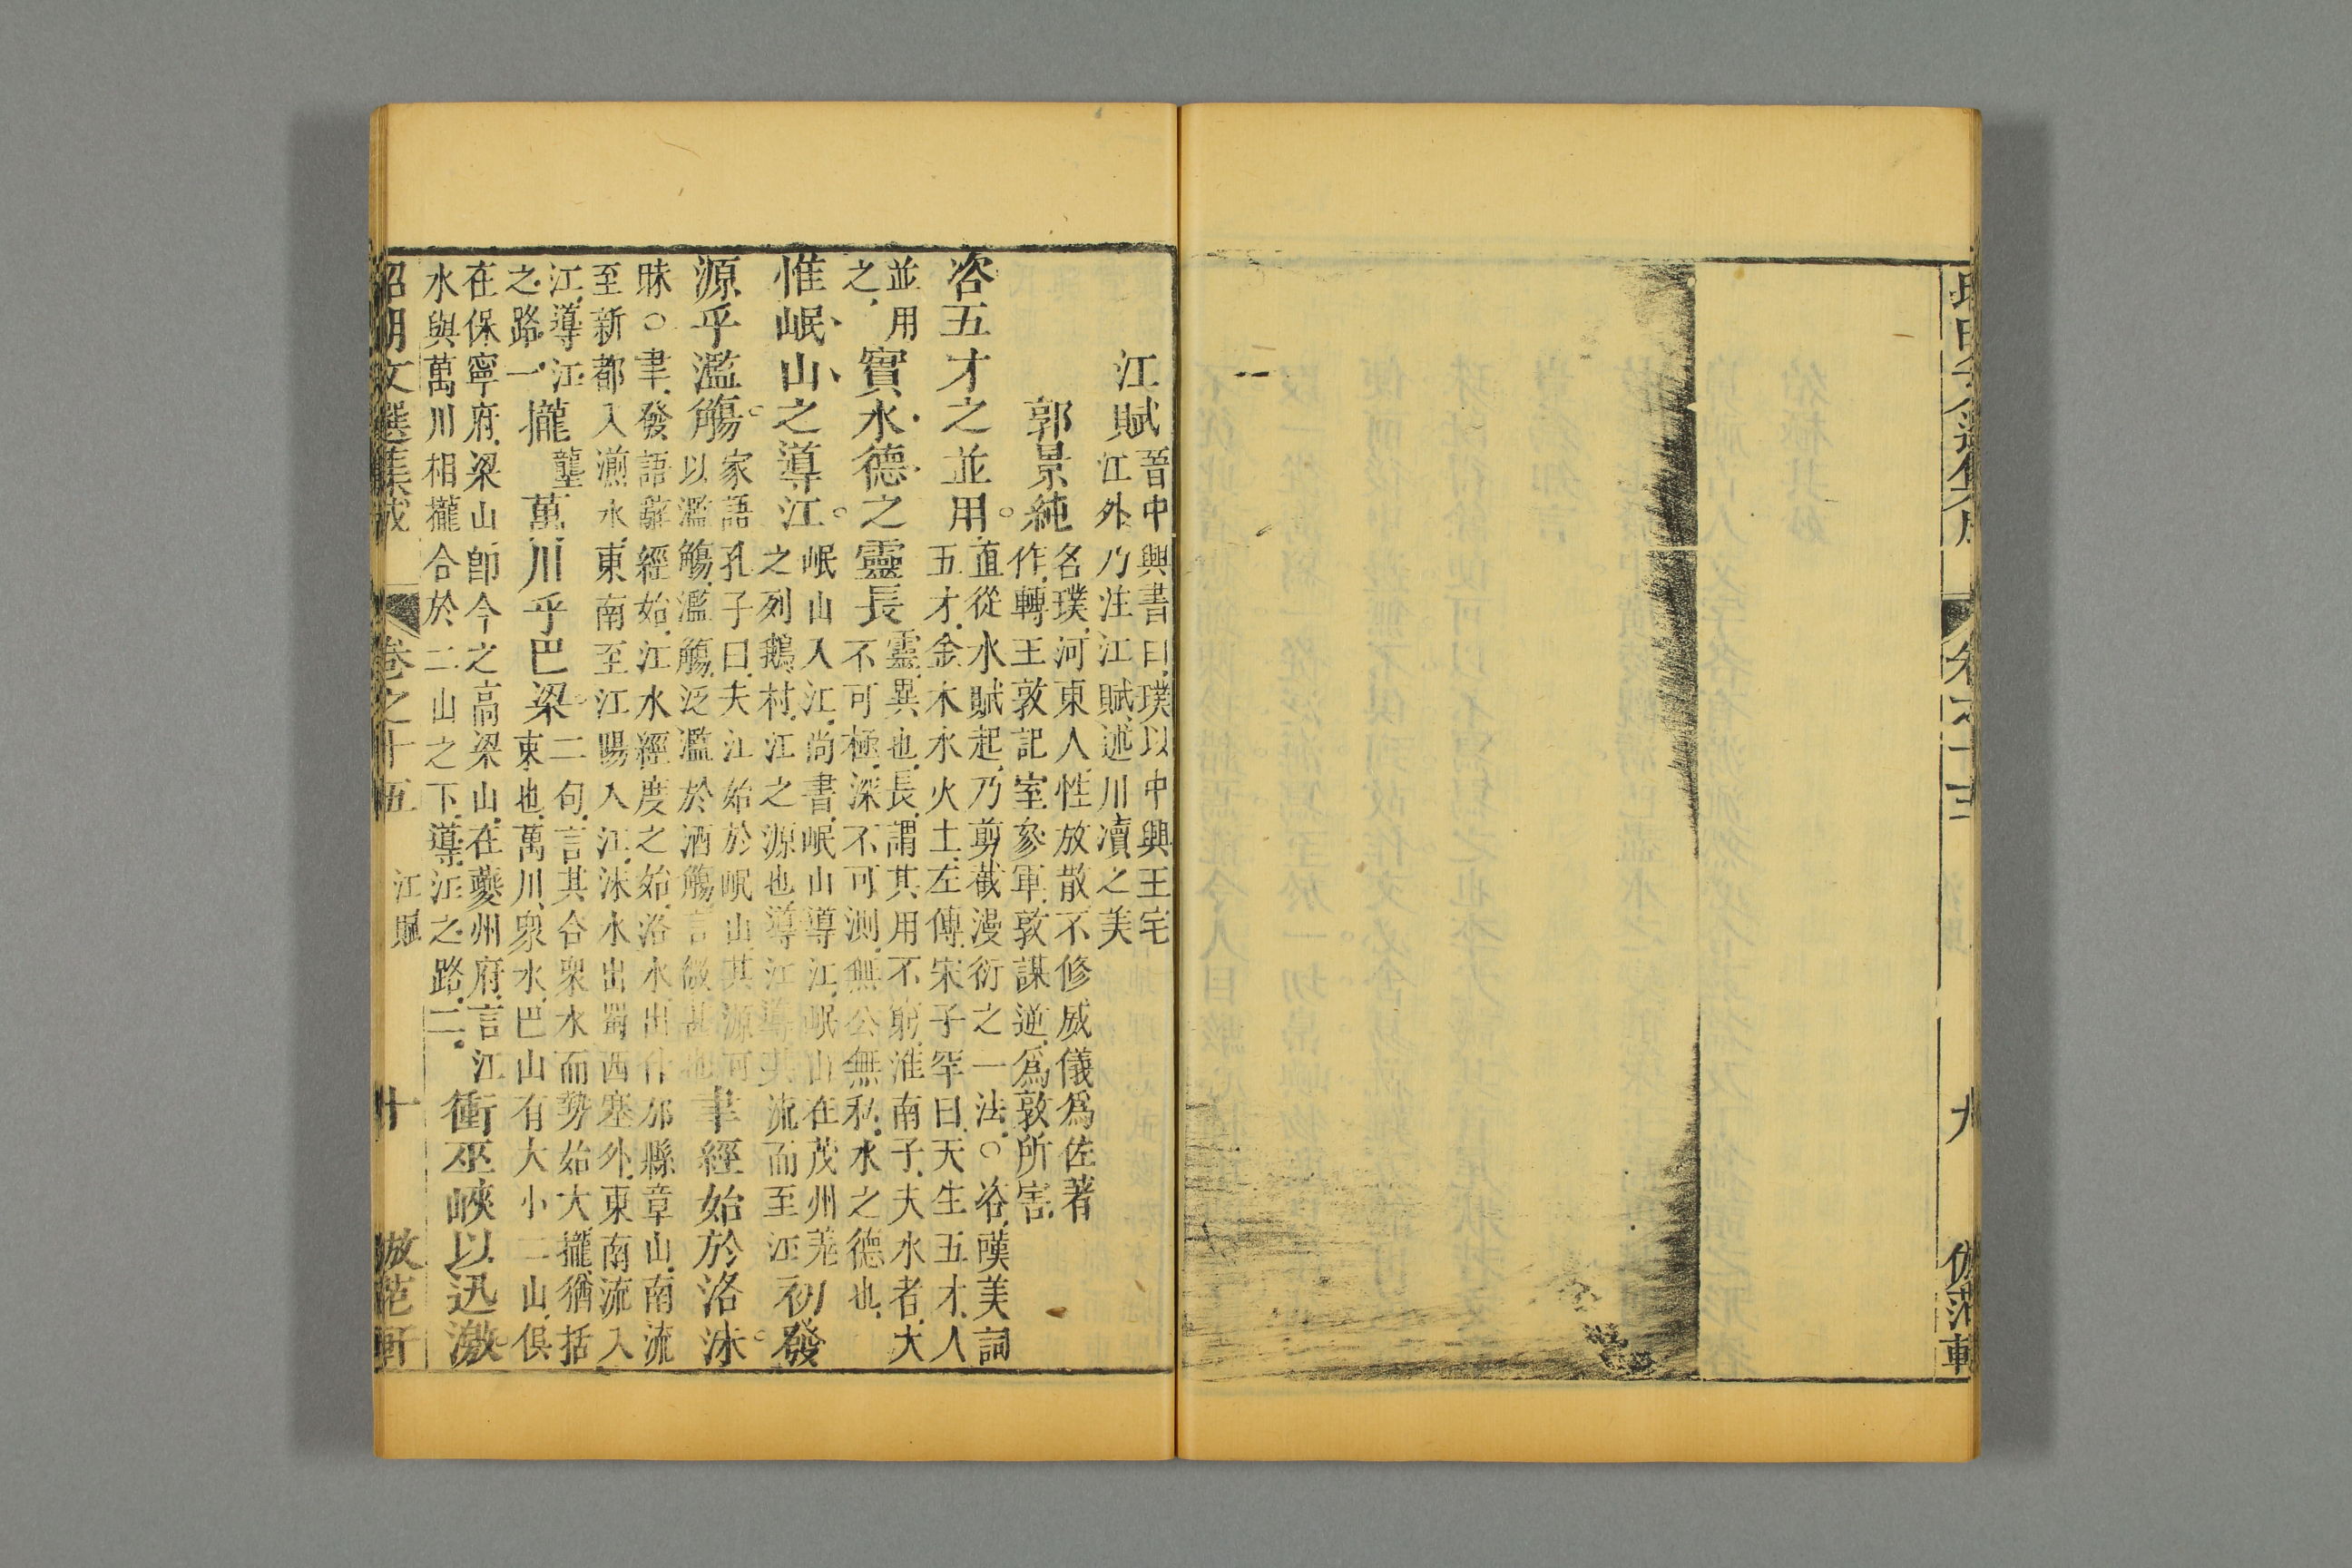 九
江賦晉中興書曰璞以中興王宅
江外乃注江賦述川瀆之美
郭景純名璞河東人性放散不修威儀爲佐著
作轉王敦記室參軍敦謀逆爲敦所害
直從水賦起乃剪截漫衍之一法○咨嘆美詞
咨五才之並用
五才金木水火土左傳宋子罕曰天生五才人
並用
之
實水德之靈長
靈異也長謂其用不窮淮南子夫水者大
不可極深不可測無公無私水之德也
惟岷山之導江
岷山入江尚書岷山導江岷山在茂州羌
之列鵝村江之源也導江導其流而至江
初發
源乎濫觴
家語孔子曰夫江始於岷山其源可
以濫觴濫觴泛濫於酒觴言微甚也
聿經始於洛沬
沬○聿發語辭經始江水經度之始洛水出什邡縣章山南流
至新都入湔水東南至江陽入江沬水出蜀西塞外東南流入
江導江
之路一
攏龍萬川乎巴梁
二句言其合衆水而勢始大攏猶括
束也萬川衆水巴山有大小二山俱
在保寧府梁山卽今之高梁山在夔州府言江
水與萬川相攏合於二山之下導江之路二
衝巫峽以迅激
昭明文選集成 卷之十五 江賦 十 倣范軒